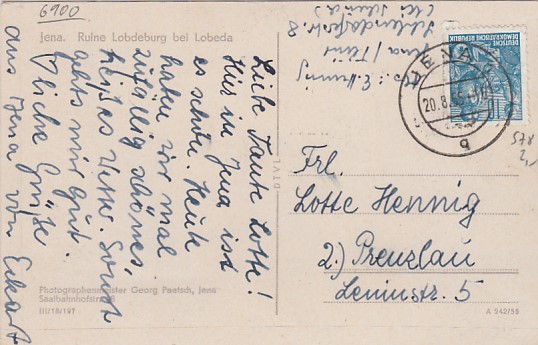 6900
Jena. Ruine Lobdeburg bei Lobeda
Liebe Tante Lotte!
Hier in Jena ist
es schön. Heute
haben wir mal
zufällig schönes,
heißes Wetter. Sonst
gehts mir gut.
liche Grüße
aus Jena von Eckart
Abs: E. Hennig
Jena / Thür
8
(bei
DEUTSCHE
DEMOKRATISCHE REPUBLIK
JENA
20.8.
g
578
2,-
Frl.
Lotte Hennig
2.) Prenzlau
Leninstr. 5
Photographenmeister Georg Paetsch, Jena
Saalbahnhofstraße
III/18/197
A 942/55